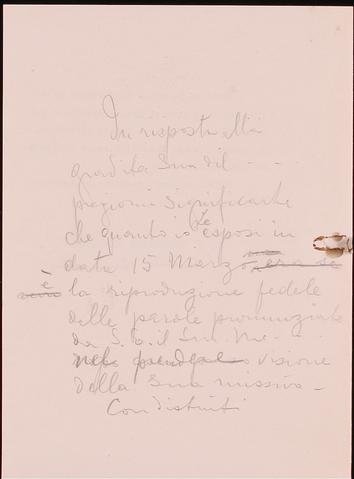 In risposta alla
gradita Sua del - -
pregiomi significarLe
che quanto io Le esposi in
data 15 Marzo
è la riproduzione fedele
delle parole pronunziate
da S. E. il
visione
della Sua missiva -
Con distinti